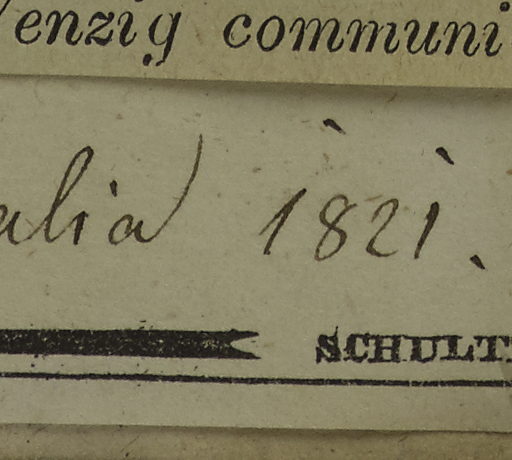 enzig communi
alia 1821.
SCHULT